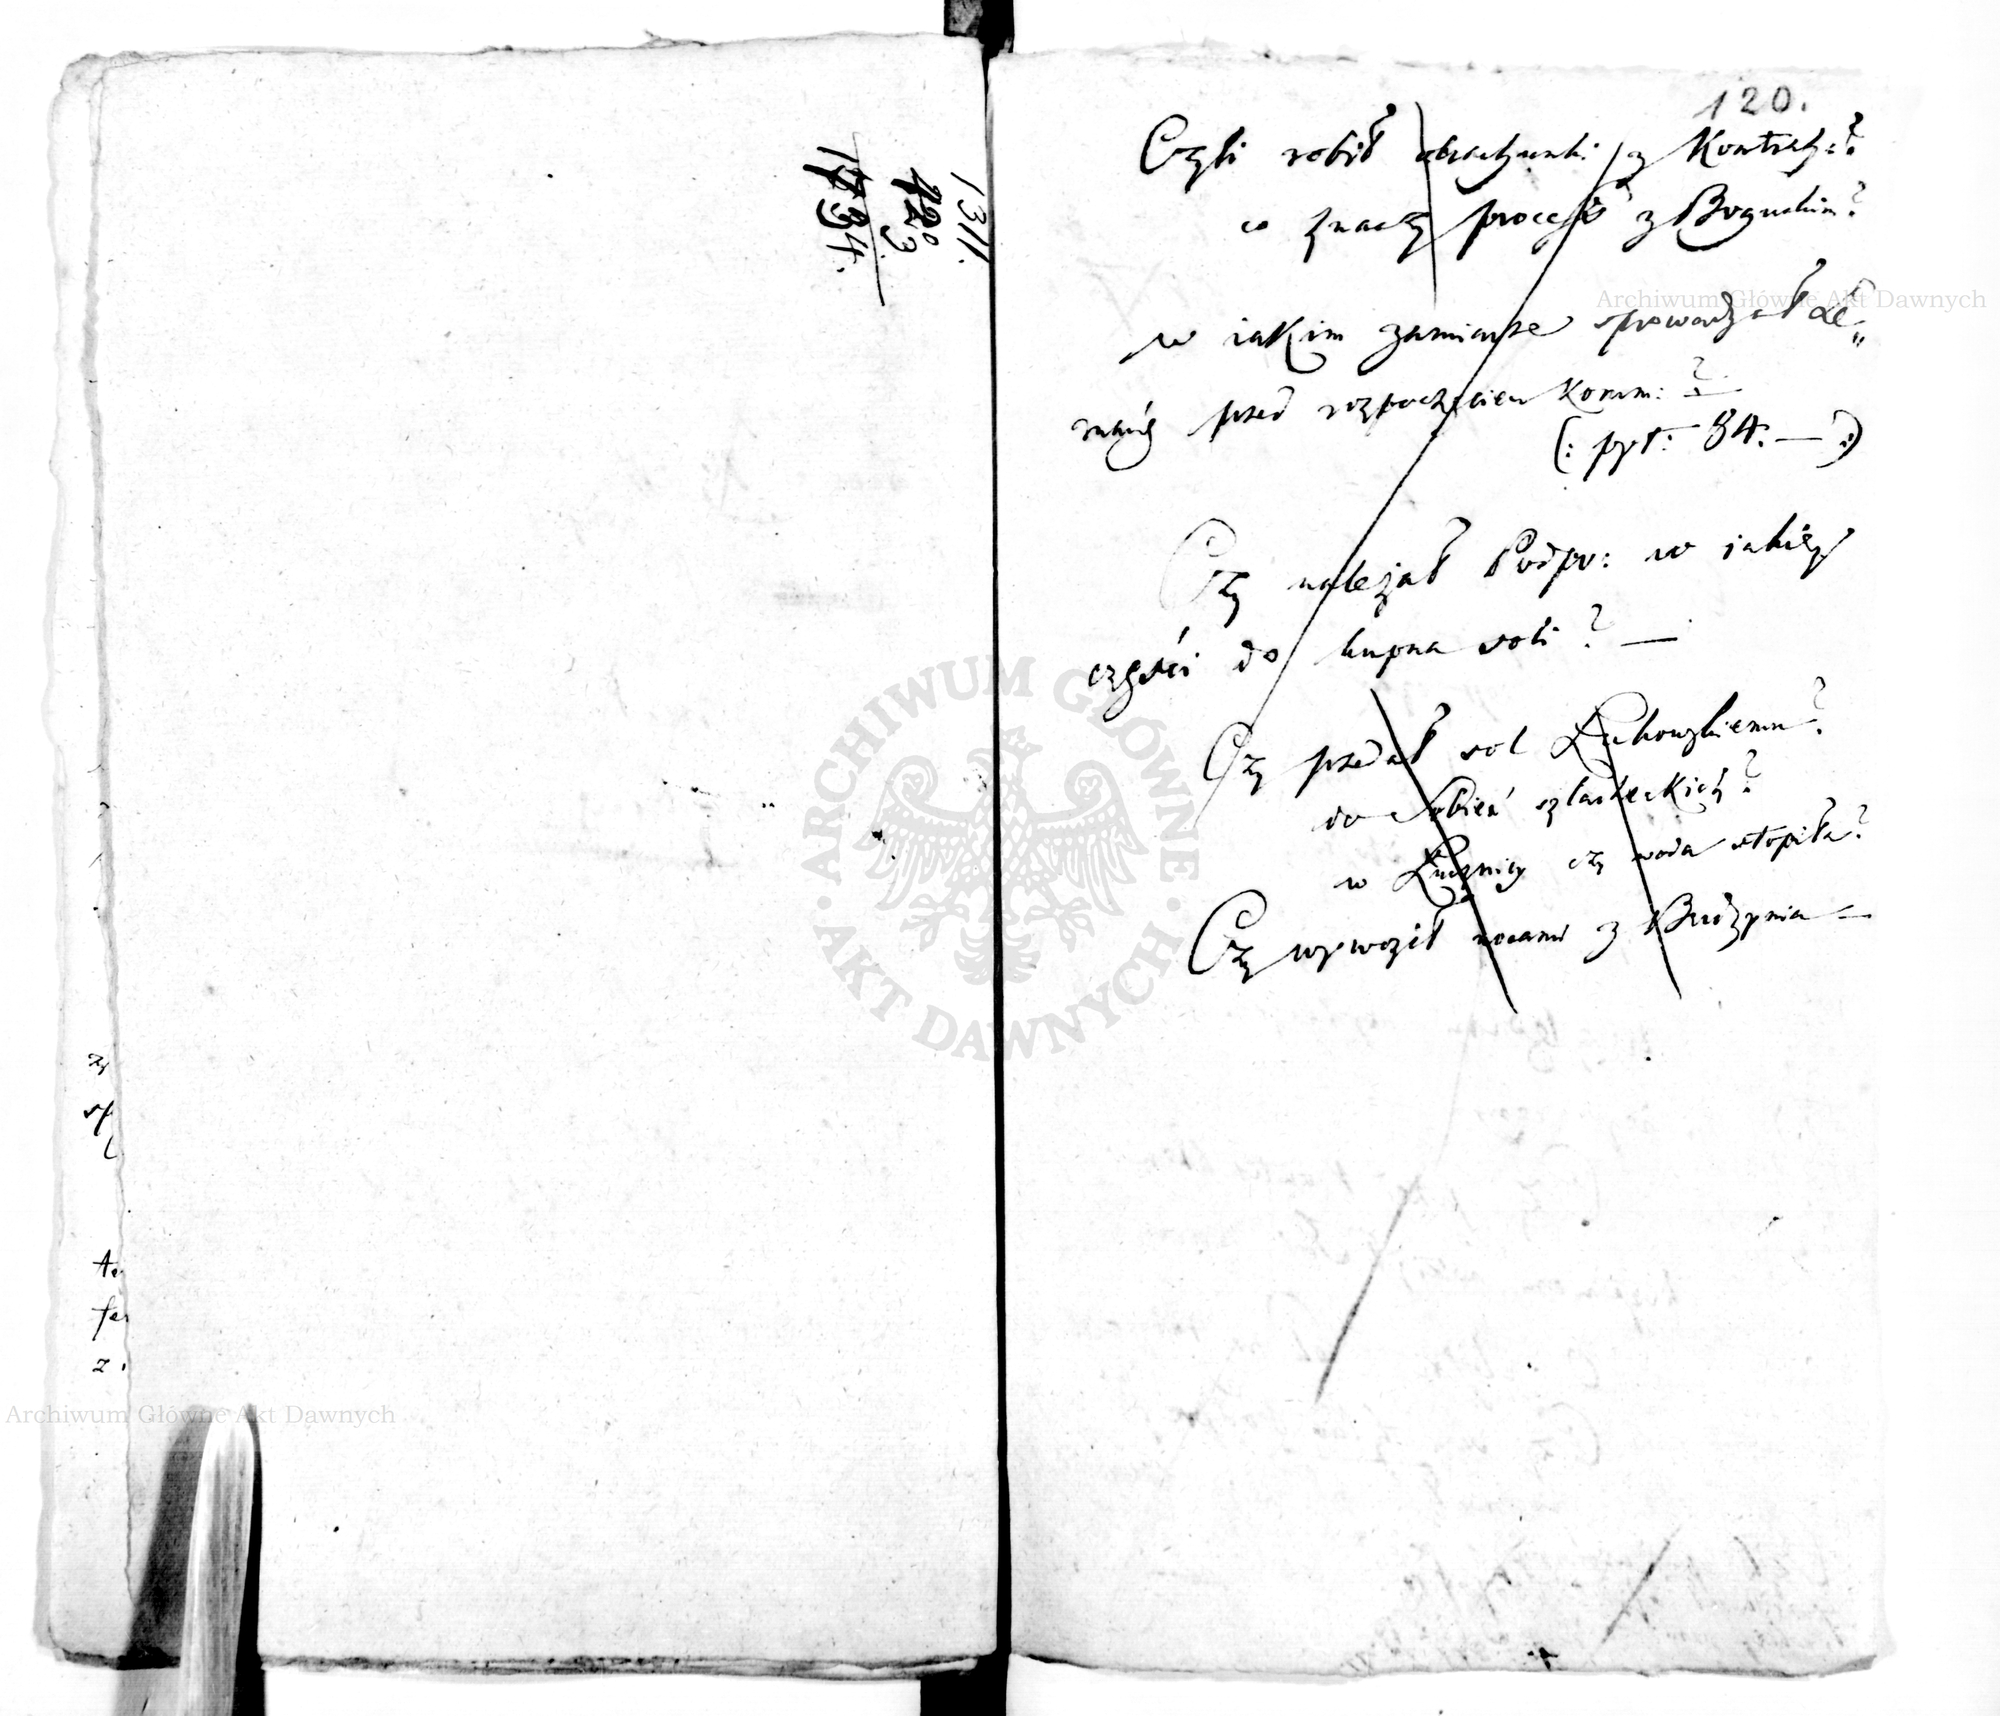 1311.
423
1734.
120.
Czyli robił obrachunki z Kontrah:?
co znaczy process z Boguckim?
w iakim zamiarze sprowadzał Le„
przed rozpoczęciem Komm: ?
(: pyt: 84. — :)
Czy należał Podpr: w iakiey
części do kupna soli? —
Czy przedał sol Łukowskiemu?
do Sobień szlacheckich?
w Łucznicy czy woda stopiła?
Czy wywoził nocami z Budzynia —
Archiwum Główne Akt Dawnych
ARCHIWUM GŁÓWNE
· AKT DAWNYCH ·
Archiwum Główne Akt Dawnych